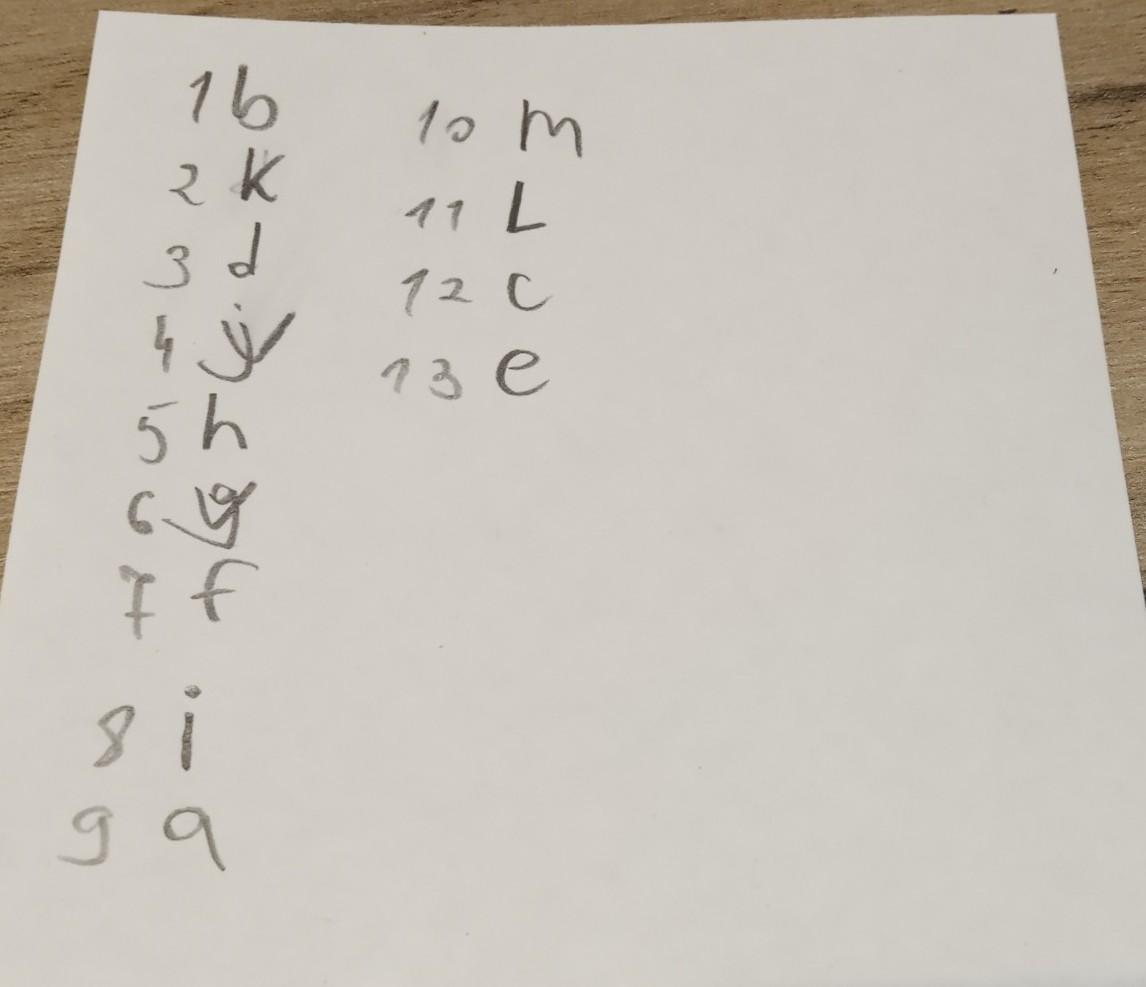 1 b
2 k
3 d
4 j
5 h
6 g
7 f
8 i
9 a
10 m
11 L
12 c
13 e